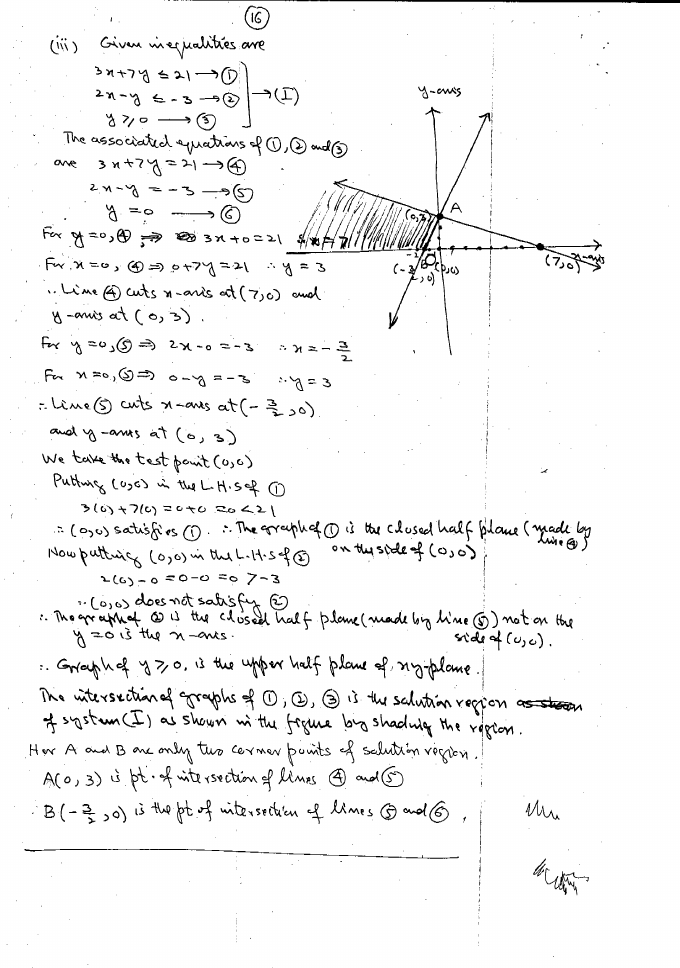 16
(iii) Given inequalities are
3x+7y ≤ 21 → ①
2x-y ≤ -3 → ② → (I)
y ≥ 0 → ③
The associated equations of ①, ② and ③
are 3x+7y = 21 → ④
2x-y = -3 → ⑤
y = 0 → ⑥
For y=0, ④ ⇒ 3x+0=21 ∴ x=7
For x=0, ④ ⇒ 0+7y=21 ∴ y=3
∴ Line ④ cuts x-axis at (7,0) and
y-axis at (0,3).
For y=0, ⑤ ⇒ 2x-0 = -3 ∴ x = -3/2
For x=0, ⑤ ⇒ 0-y = -3 ∴ y = 3
∴ Line ⑤ cuts x-axis at (-3/2, 0)
and y-axis at (0, 3)
We take the test point (0,0)
Putting (0,0) in the L.H.S of ①
3(0)+7(0) = 0+0 = 0 < 21
∴ (0,0) satisfies ①. ∴ The graph of ① is the closed half plane (made by line ④)
on the side of (0,0)
Now putting (0,0) in the L.H.S of ②
2(0)-0 = 0-0 = 0 > -3
∴ (0,0) does not satisfy ②
∴ The graph of ② is the closed half plane (made by line ⑤) not on the
side of (0,0).
y=0 is the x-axis.
∴ Graph of y ≥ 0, is the upper half plane of xy-plane.
The intersection of graphs of ①, ②, ③ is the salution region
of system (I) as shown in the figure by shading the region.
Her A and B are only two corner points of salution region.
A(0, 3) is pt. of intersection of lines ④ and ⑤
B(-3/2, 0) is the pt of intersection of lines ⑤ and ⑥.
y-axis
A
(0,3)
x-axis
-2
B
(0,0)
(-3/2, 0)
(7,0)